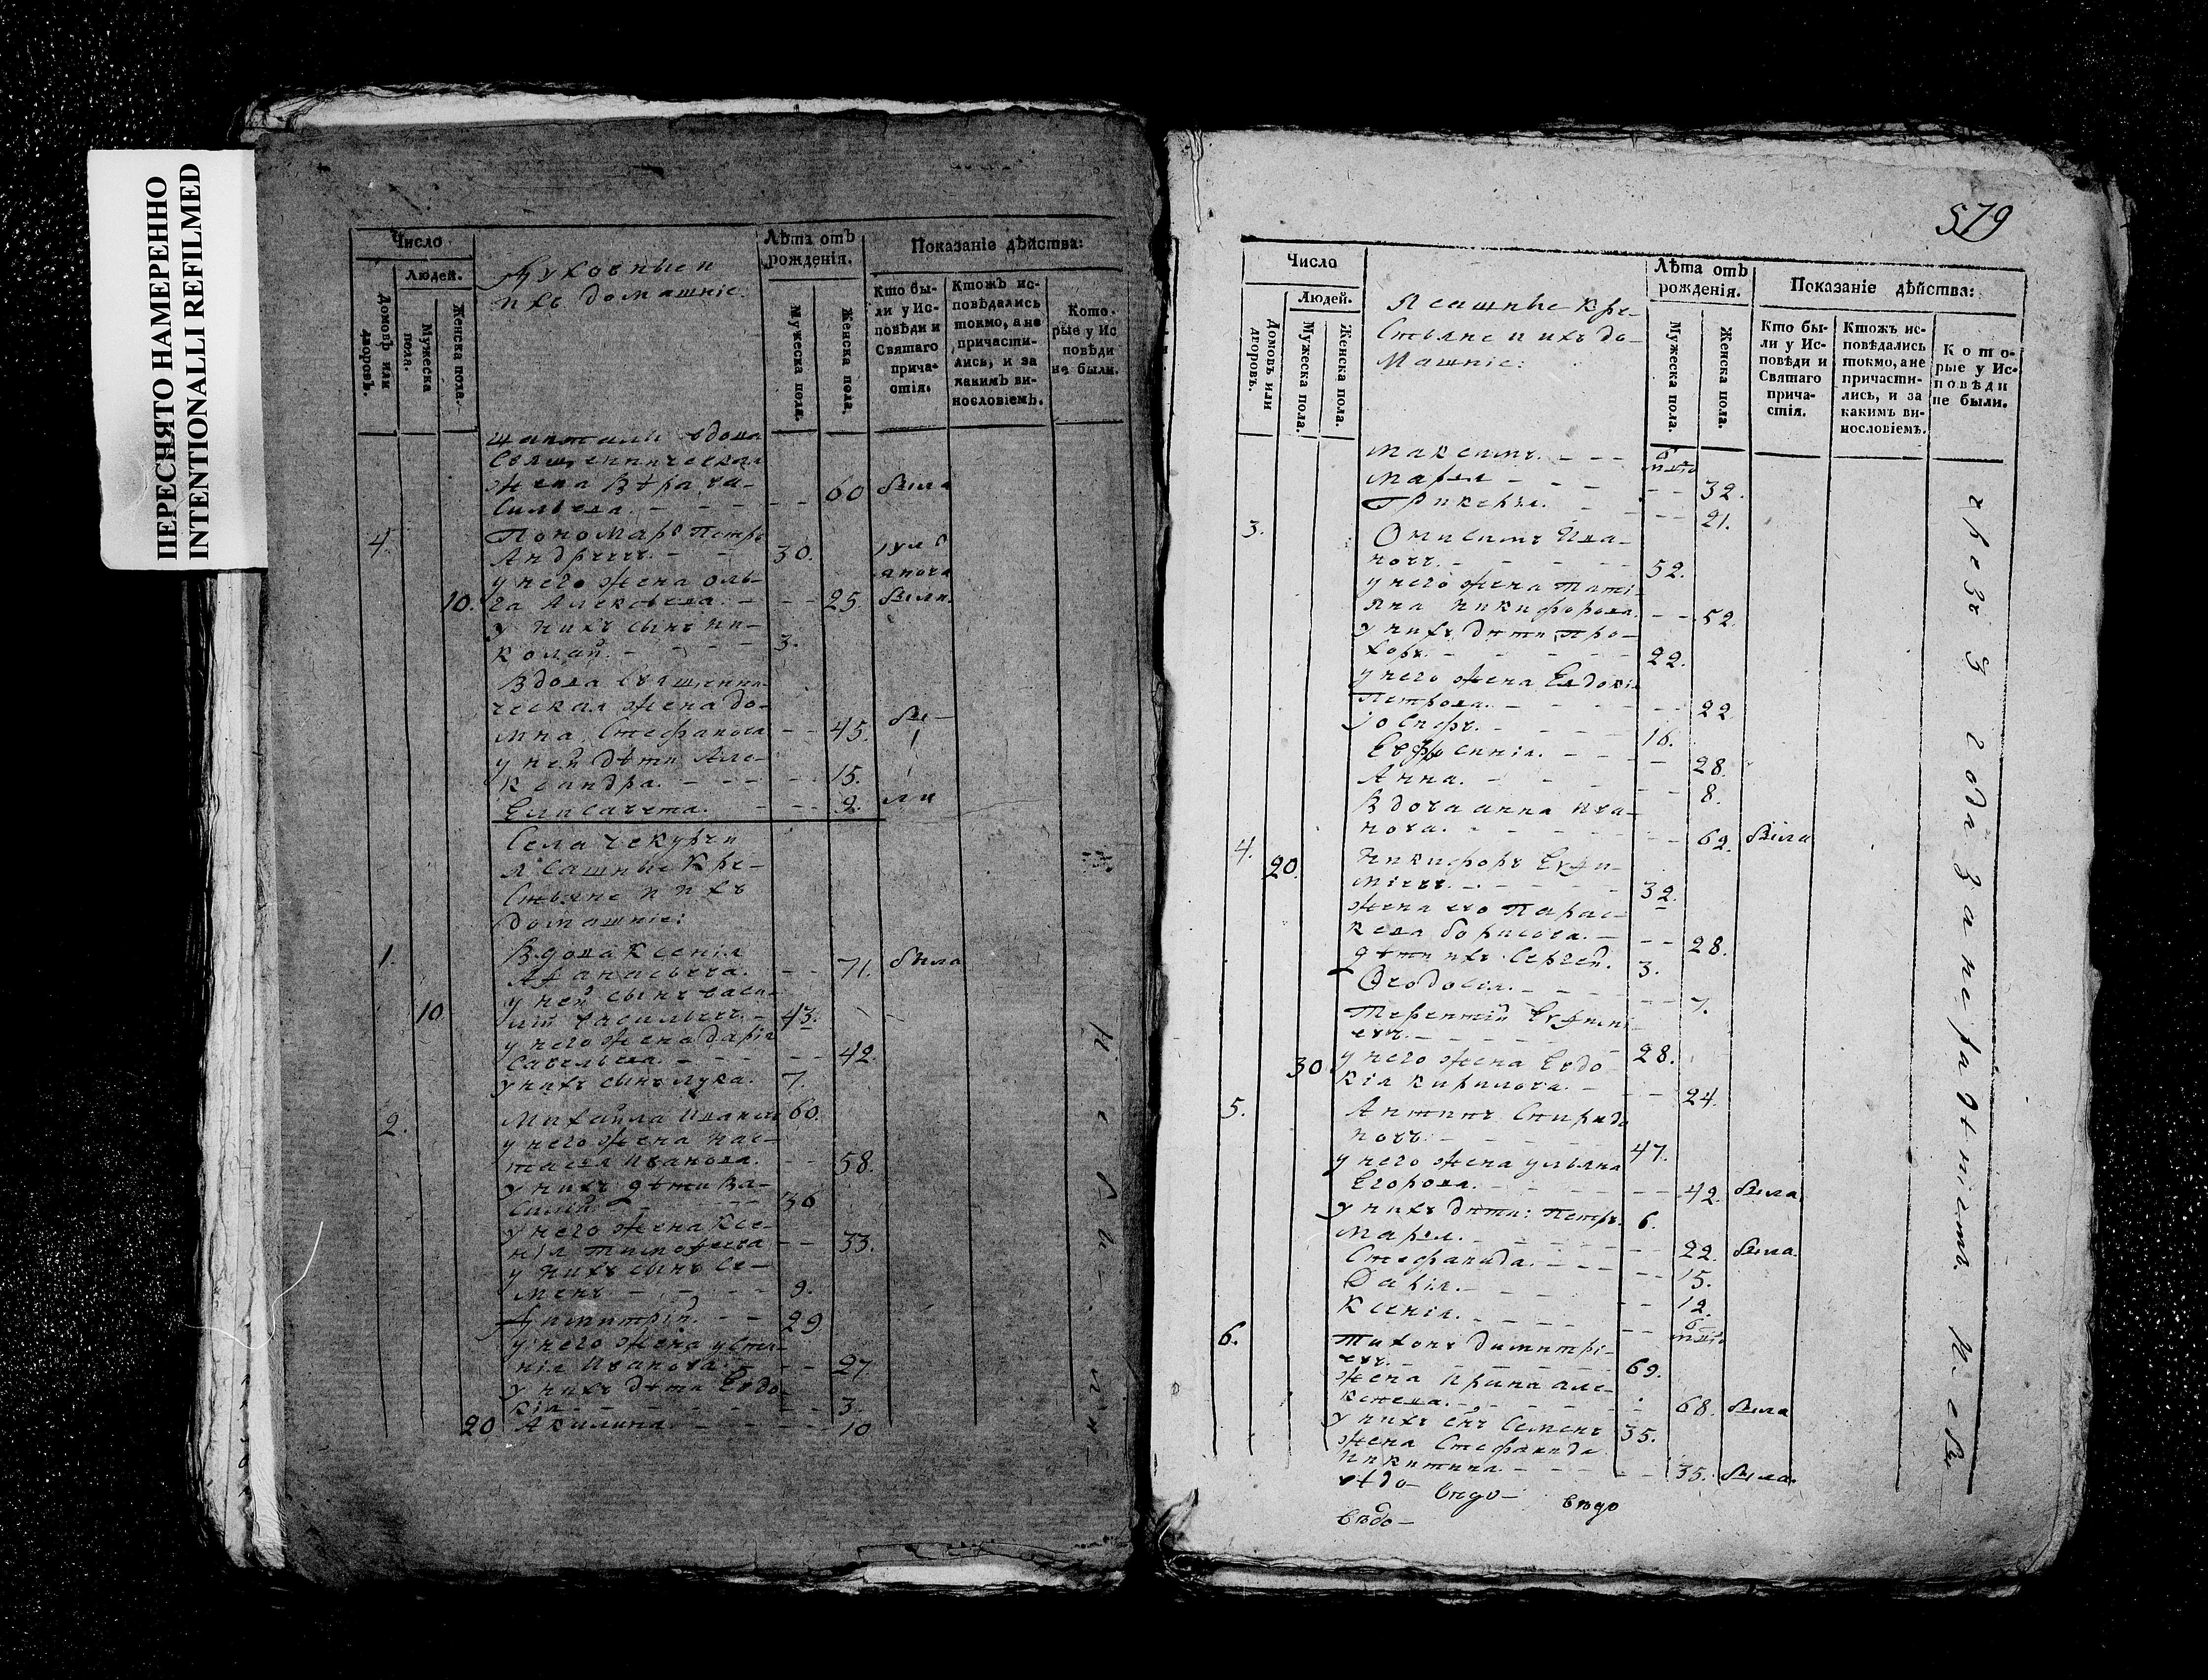 ПЕРЕСНЯТО НАМЕРЕННО
INTENTIONALLI REFILMED
Число
Людей.
Домовъ или дворовъ.
Мужеска пола.
Женска пола.
Духовныи и
ихъ домашніе.
Лѣта отъ
рожденія.
Мужеска пола.
Женска пола.
Показаніе дѣйства:
Кто бы-
ли у Ис-
повѣди и
Святаго
прича-
стія.
Ктожъ ис-
повѣдались
токмо, а не
причасти-
лись, и за
какимъ ви-
нословіемъ.
Кото-
рые у Ис
повѣди
не были.
вдова
Священническая
жена Вѣра Ва-
сильева. 60 была
4. Пономарь Петръ
Андреевъ. 30.
у него жена Оль-
10. га Алексѣева. 25. были
у нихъ сынъ Ни-
колай. 3.
Вдова священни-
ческая жена До-
мна Стефанова 45. бы-
у ней дѣти Але-
ксандра. 15.
Елисавета. 2. ли
Села Чекурчи
Ясашные Кре-
стьяне и ихъ
домашніе:
1. Вдова Ксенія
Афанасьева. 71. была
у ней сынъ Васи-
10 лій Васильевъ. 43.
у него жена Дарія
Савельева. 42.
у нихъ сынъ Лука. 7.
2. Михайла Ивановъ 60.
у него жена Нас-
тасья Иванова. 58.
у нихъ дѣти Ва-
силій 36
у него жена Ксе-
нія Тимофеева 33.
у нихъ сынъ Се-
менъ 9.
Димитрій. 29.
у него жена Усти-
нія Иванова. 27.
у нихъ дѣти Евдо-
кія 3.
20 Акилина. 10
Не бы-ли
579
Число
Людей.
Домовъ или дворовъ.
Мужеска пола.
Женска пола.
Ясашные Кре-
стьяне и ихъ до-
машніе:
Лѣта отъ
рожденія.
Мужеска пола.
Женска пола.
Показаніе дѣйства:
Кто бы-
ли у Ис-
повѣди и
Святаго
прича-
стія.
Ктожъ ис-
повѣдались
токмо, а не
причасти-
лись, и за
какимъ ви-
нословіемъ.
Кото-
рые у Ис-
повѣди
не были.
Максимъ. 6
Марья 32.
Гликерья. 21.
3. Онисимъ Ива-
новъ. 52.
у него жена Тать-
яна Никифорова. 52.
у нихъ дѣти Про-
хоръ. 22.
у него жена Евдокія
Петрова. 22.
Іосифъ. 16.
Евфросинія. 28.
Анна. 8.
Вдова Анна Ива-
нова. 62. была
4. 20. Никифоръ Евфи-
міевъ. 32.
жена его Парас-
кева Борисова. 28.
дѣти ихъ Сергей. 3.
Феодосія. 7.
Терентій Евфимі-
евъ. 28.
30 у него жена Евдо-
кія Кирилова. 24.
5. Антипъ Спиридо
новъ. 47.
у него жена Ульяна
Егорова. 42. была
у нихъ дѣти: Петръ. 6.
Марья. 22. была.
Стефанида. 15.
Дарія. 12.
Ксенія. 6
6. Тихонъ Димитрі-
евъ. 69.
жена Ирина Але-
ксѣева. 68. была
у нихъ снъ Семенъ 35.
жена Стефанида
Никитина 35. была.
вѣдо-
вѣдо-
вѣдо
вѣдо-